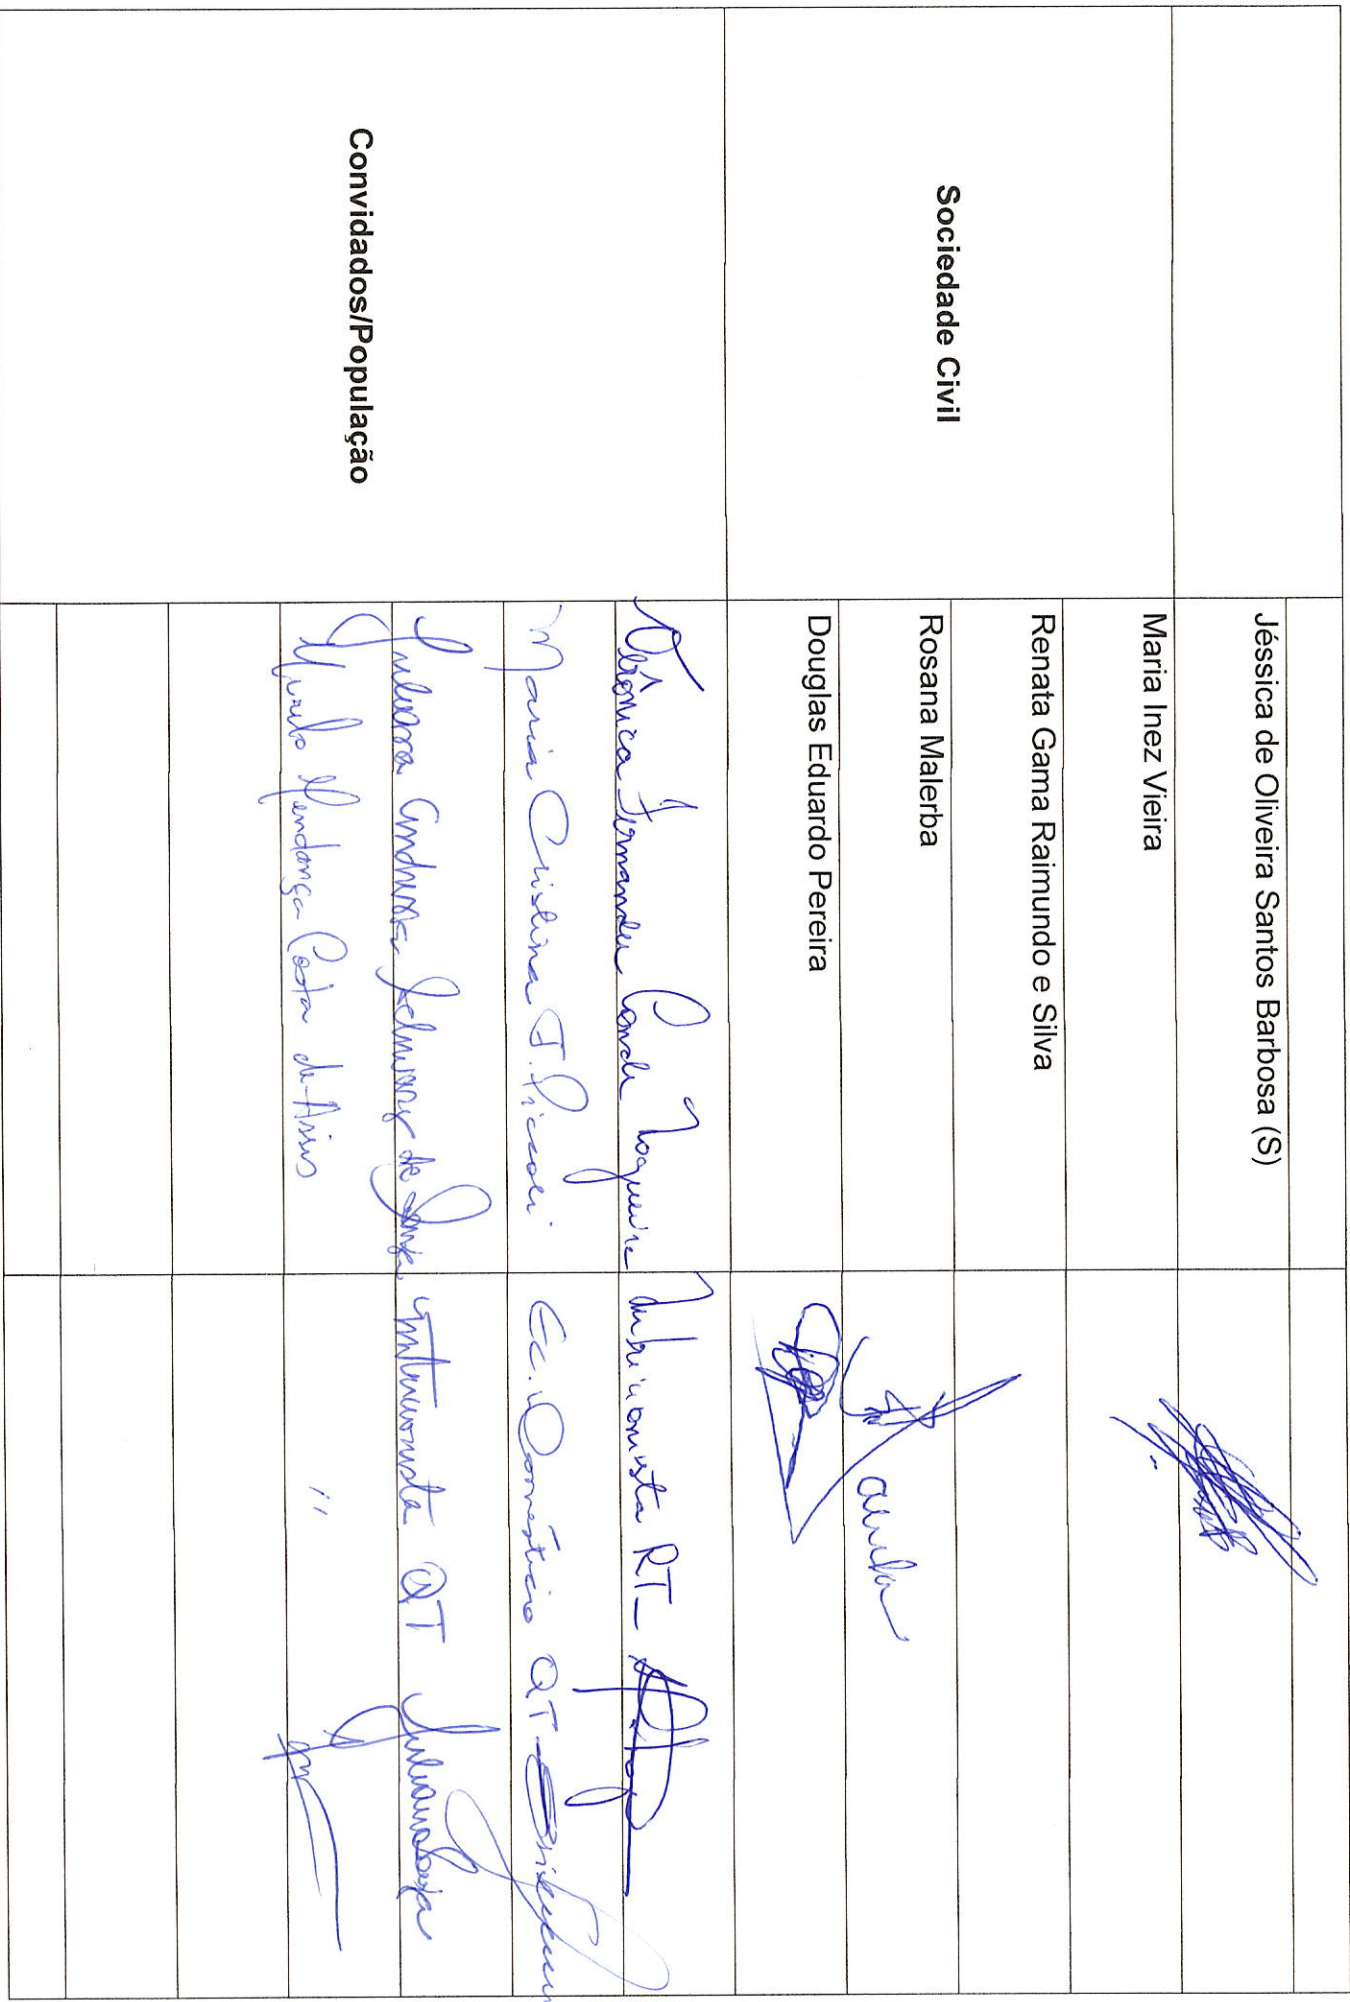 Jéssica de Oliveira Santos Barbosa (S)
Sociedade Civil
Maria Inez Vieira
Renata Gama Raimundo e Silva
Rosana Malerba
Douglas Eduardo Pereira
Convidados/População
Verônica Fernandes Conde Nogueira Nutricionista RT
Maria Cristina F. Piccoli Ec. Doméstico QT
Juliana Andressa de Souza nutricionista QT Juliana Souza
Murilo Mendonça Costa de Assis "